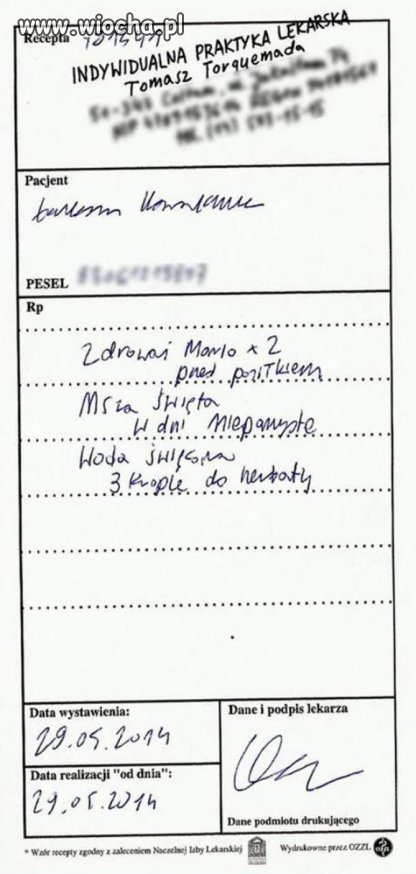 www.wiocha.pl
Recepta
INDYWIDUALNA PRAKTYKA LEKARSKA
Tomasz Torquemada
Pacjent
PESEL
Rp
Zdrowaś Mario x 2
przed posiłkiem
Msza Święta
w dni nieparzyste
Woda święcona
3 krople do herbaty
Data wystawienia:
29.05.2014
Dane i podpis lekarza
Data realizacji "od dnia":
29.05.2014
Dane podmiotu drukującego
* Wzór recepty zgodny z zaleceniem Naczelnej Izby Lekarskiej
Wydrukowne przez OZZL